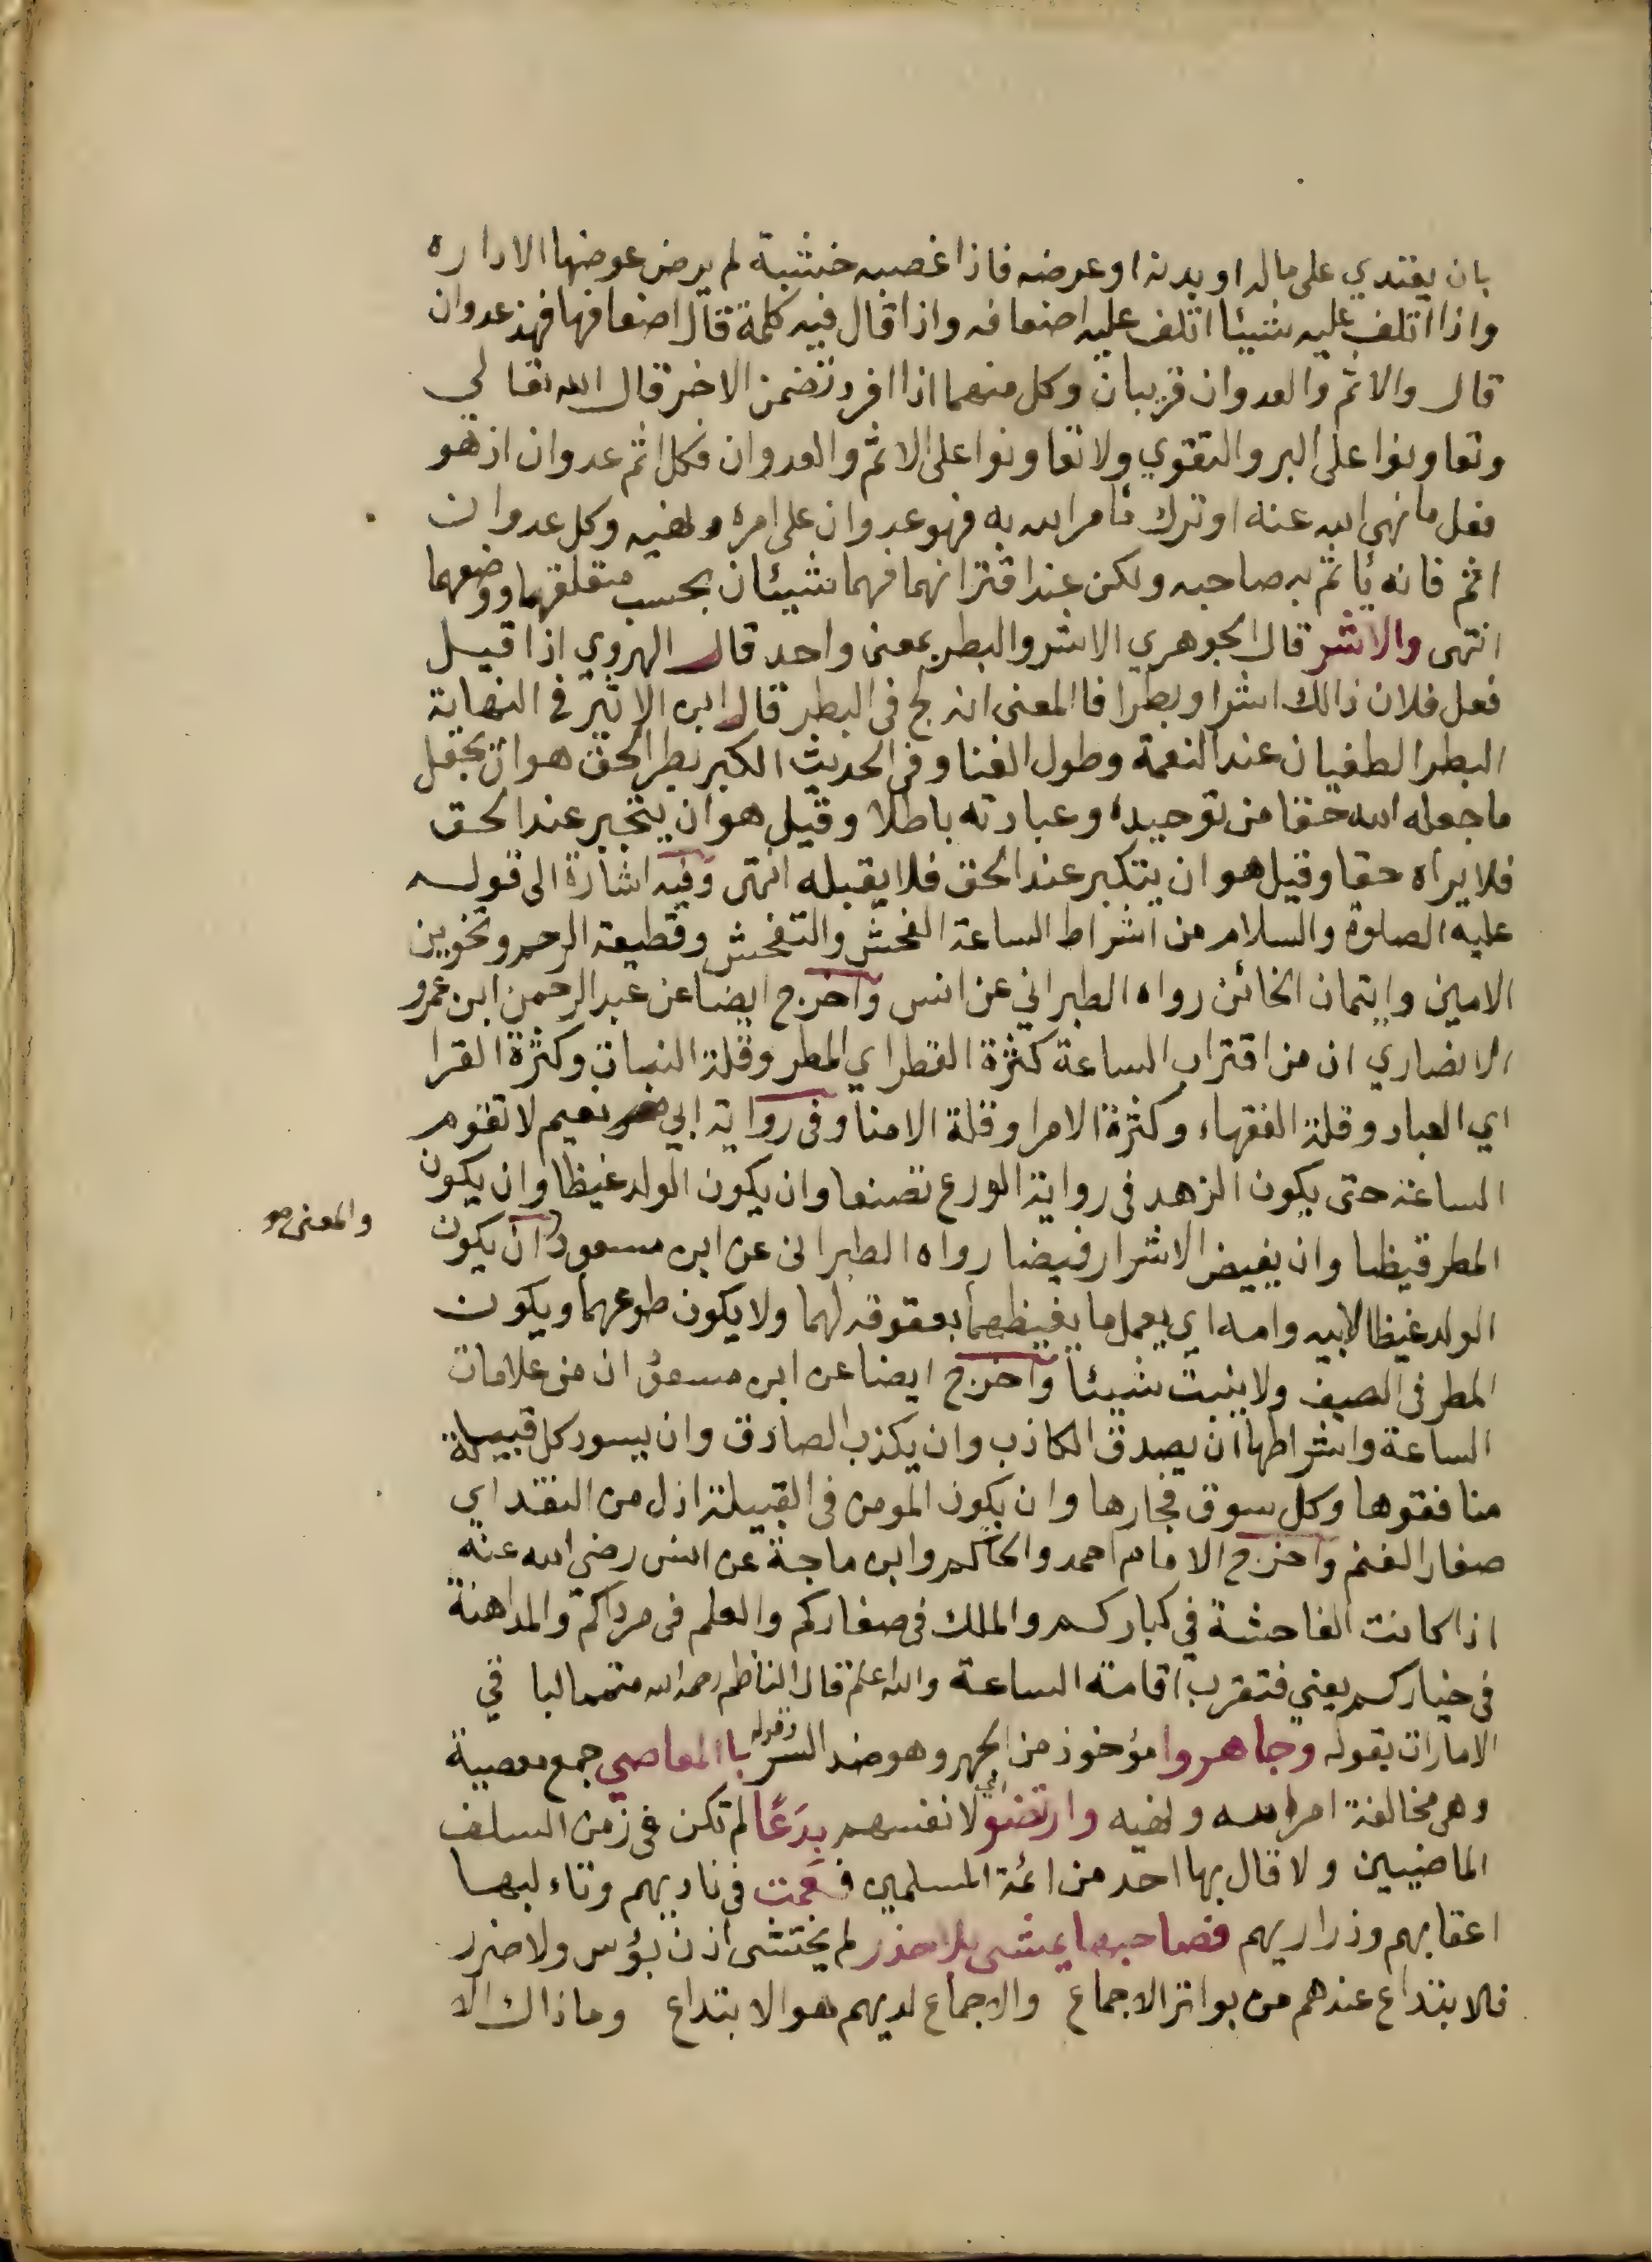 بان يعتدي على ماله او بدنه او عرضه فاذا غصبه خشبة لم يرض عوضها الا داره
واذا اتلف عليه شيئا اتلف عليه اضعافه واذا قال فيه كلمة قال اضعافها فهذ عدوان
قال والاثم والعدوان قريبان وكل منهما اذا افرد تضمن الاخر قال الله تعالي
وتعاونوا على البر والتقوي ولا تعاونوا على الاثم والعدوان فكل اثم عدوان اذ هو
فعل ما نهى الله عنه او ترك مامر الله به فهو عدوان على امره ونهيه وكل عدوان
اثم فانه يأثم به صاحبه ولكن عند اقترانهما فهما شيئان بحسب متعلقهما ووضعهما
انتهى والاشر قال الجوهري الاشر والبطر بمعنى واحد قال الهروي اذا قيل
فعل فلان ذالك اشرا وبطرا فا المعنى انه لج في البطر قال ابن الاثير في النهاية
البطر الطغيان عند النعمة وطول الغنا وفي الحديث الكبر بطر الحق هو ان يجعل
ما جعله الله حقا من توحيده وعبادته باطلا وقيل هو ان يتجبر عند الحق
فلا يراه حقا وقيل هو ان يتكبر عند الحق فلا يقبله انتهى وفيه اشارة الى قوله
عليه الصلوة والسلام من اشراط الساعة الفحش والتفحش وقطيعة الرحم وتخوين
الامين وايتمان الخائن رواه الطبراني عن انس واخرج ايضا عن عبد الرحمن ابن عمرو
الانصاري ان من اقتراب الساعة كثرة القطر اي المطر وقلة النبات وكثرة القرا
اي العباد وقلة الفقهاء وكثرة الامرا وقلة الامنا وفي رواية ابي نعيم لا تقوم
الساعة حتى يكون الزهد في رواية الورع تصنعا وان يكون الولد غيظا وان يكون
المطر قيظا وان يفيض الاشرار فيضا رواه الطبراني عن ابن مسعود ان يكون
والمعنى هو
الولد غيظا لابيه وامه اي يعمل ما يغيظهما بعقوقه لهما ولا يكون طوعهما ويكون
المطر في الصيف ولا ينبت شيئا واخرج ايضا عن ابن مسعود ان من علامات
الساعة واشراطها ان يصدق الكاذب وان يكذب الصادق وان يسود كل قبيلة
منافقوها وكل سوق فجارها وان يكون المومن في القبيلة اذل من النقد اي
صغار الغنم واخرج الامام احمد والحاكم وابن ماجة عن انس رضي الله عنه
اذا كانت الفاحشة في كباركم والملك في صغاركم والعلم في مرداكم والمداهنة
في خياركم يعني فتقرب اقامة الساعة والله اعلم قال الناظم رحمه الله متمما لبا قي
الامارات بقوله وجاهروا مؤخوذ من الجهر وهو ضد السر وقوله با المعاصي جمع معصية
وهي مخالفة امر الله ونهيه وارتضوا اي لانفسهم بِدَعًا لم تكن في زمن السلف
الماضيين ولا قال بها احد من ائمة المسلمين فعمت في ناديهم وتاء لبها
اعقابهم وذراريهم فصاحبها يمشي بلا حذر لم يختشى اذن بؤس ولا ضرر
فالابتداع عندهم من بواتر الاجماع والاجماع لديهم هو الابتداع وما ذاك الا